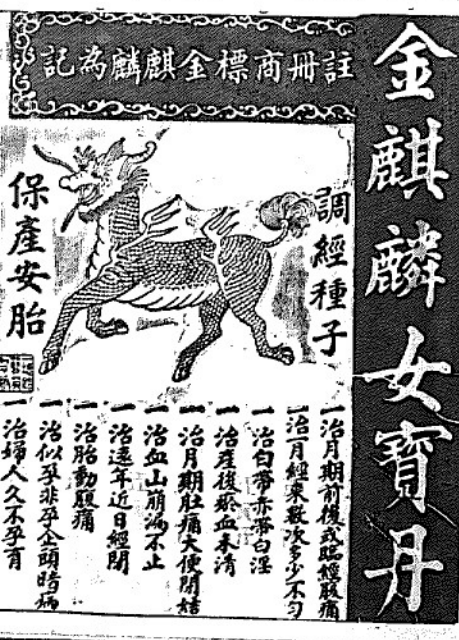 金麒麟女寶丹
註冊商標金麒麟為記
調經種子
保產安胎
一治月期前後或臨經腹痛
一治一月經來數次多少不勻
一治白帶赤帶白淫
一治產後瘀血未清
一治月期肚痛大便閉結
一治血山崩漏不止
一治遠年近日經閉
一治胎動腹痛
一治似孕非孕企頭暗病
一治婦人久不孕育